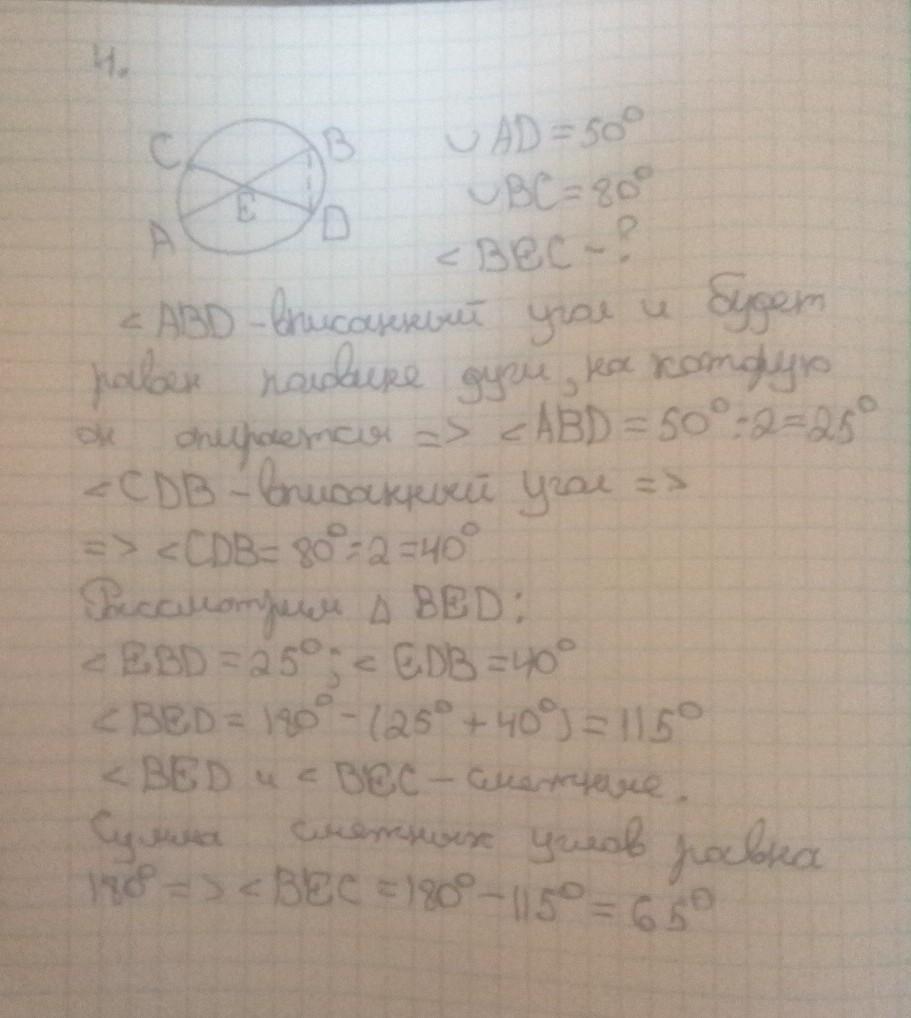 4.
C B
E
A D
∪AD = 50°
∪BC = 80°
∠BEC - ?
∠ABD - вписанный угол и будет
равен половине дуги, на которую
он опирается => ∠ABD = 50° : 2 = 25°
∠CDB - вписанный угол =>
=> ∠CDB = 80° : 2 = 40°
Рассмотрим △ BED:
∠EBD = 25°; ∠EDB = 40°
∠BED = 180° - (25° + 40°) = 115°
∠BED и ∠BEC - смежные.
Сумма смежных углов равна
180° => ∠BEC = 180° - 115° = 65°